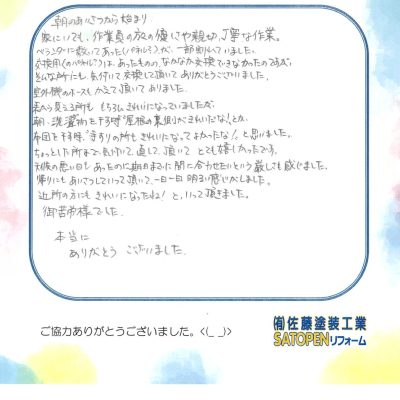 朝のあいさつから始まり
家にいても、作業員の方の優しさや親切、丁寧な作業。
ベランダに敷いてあった(パネル?)が、一部割れていました。
交換用(のパネル)は、あったものの、なかなか交換できなかったのですが
そんな所にも、気付いて交換して頂いてありがとうございました。
室外機のホースもかえて頂いてありました。
表から見える所も もちろんきれいになっていましたが、
朝、洗濯物を干す時“屋根の裏側がきれいだな!”とか、
布団を干す時、“手すりの所もきれいになってよかったな!”と思いました。
ちょっとした所まで、気付いて、直して、頂いて とても嬉しかったです。
天候の悪い日も あったのに期日までに間に合わせたいという厳しさも感じました。
帰りにもあいさつしていって頂いて、一日一日明るい感じがしました。
近所の方にも きれいになったね! と、いって頂きました。
御苦労様でした。
本当に
ありがとう ございました。
ご協力ありがとうございました。<(_ _)>
㈲佐藤塗装工業
SATOPENリフォーム